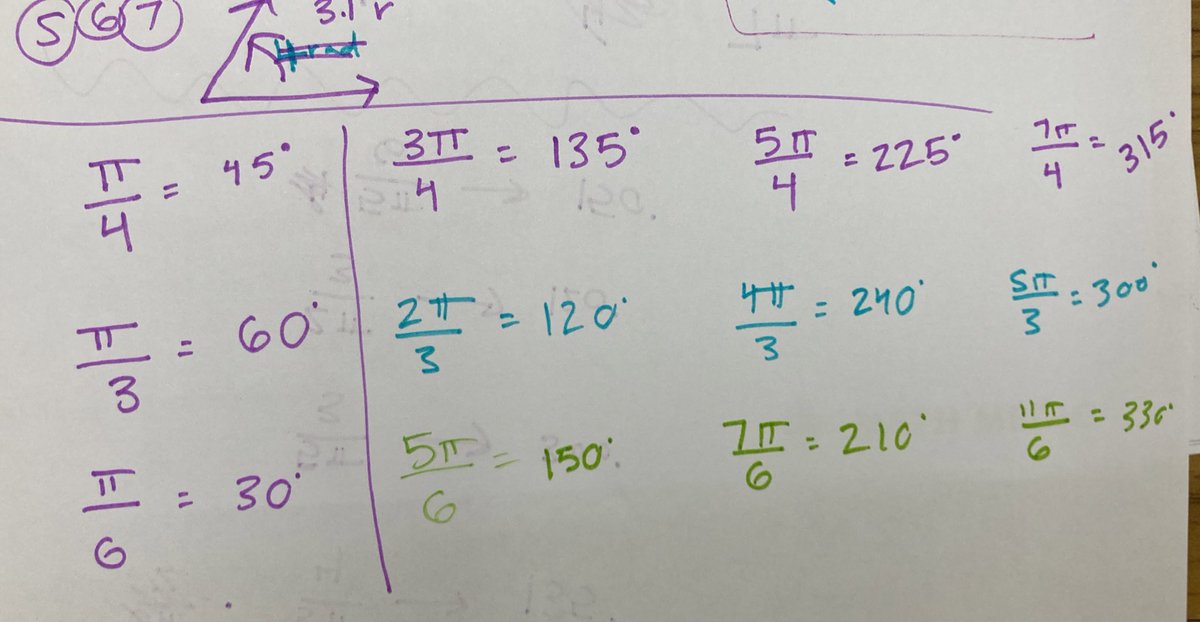 5 6 7 3.1 r
4 rad
π/4 = 45° 3π/4 = 135° 5π/4 = 225° 7π/4 = 315°
π/3 = 60° 2π/3 = 120° 4π/3 = 240° 5π/3 = 300°
π/6 = 30° 5π/6 = 150° 7π/6 = 210° 11π/6 = 330°